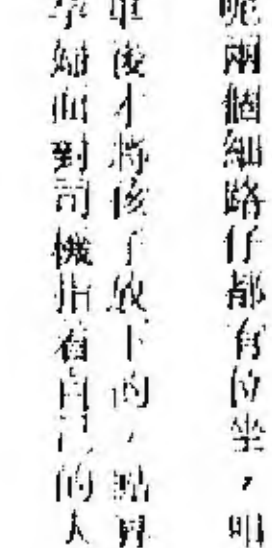 呢兩個細路仔都有位坐，唱
車後才將孩子放下的，點算
孕婦面對司機指着自己的人